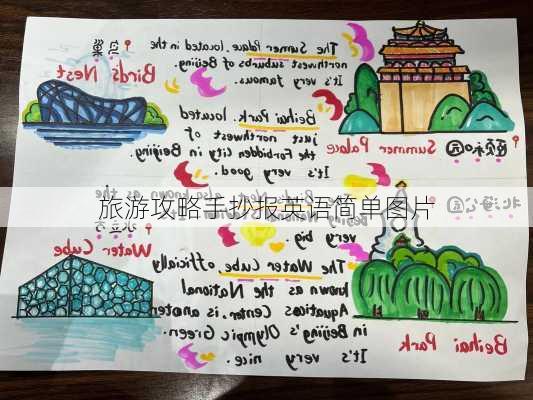 鸟巢
Bird's Nest
The Summer Palace. located in the
northwest suburbs of Beijing.
It's very famous.
颐和园
Summer Palace
Beihai Park. located
just northwest of
the Forbidden City in Beijing.
It's very good.
known as the
very big.
北海公园
Beihai Park
旅游攻略手抄报英语简单图片
水立方
Water Cube
The Water Cube officially
known as the National
Aquatics Center, is
in Beijing's Olympic Green.
It's very nice.